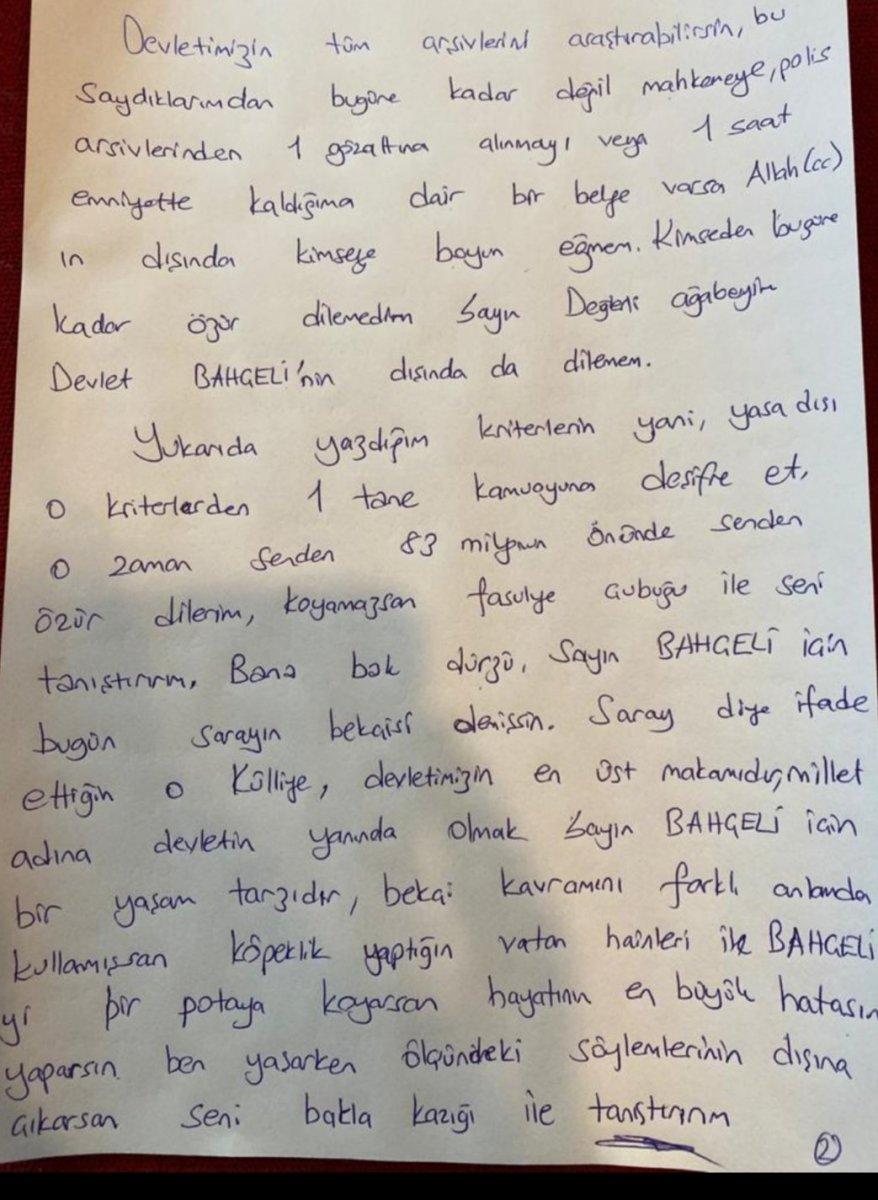 Devletimizin tüm arşivlerini araştırabilirsin, bu
Saydıklarımdan bugüne kadar değil mahkemeye, polis
arşivlerinden 1 gözaltına alınmayı veya 1 saat
emniyette kaldığıma dair bir belge varsa Allah (cc)
ın dışında kimseye boyun eğmem. Kimseden bugüne
kadar özür dilemedim Sayın Değerli ağabeyim
Devlet BAHÇELİ'nin dışında da dilemem.
Yukarıda yazdığım kriterlerin yani, yasa dışı
o kriterlerden 1 tane kamuoyuna desifre et,
o zaman senden 83 milyonun önünde senden
özür dilerim, koyamazsan fasulye çubuğu ile seni
tanıştırırım, Bana bak dürzü, Sayın BAHÇELİ için
bugün sarayın bekaisi demişsin. Saray diye ifade
ettiğin o Külliye, devletimizin en üst makamıdır, millet
adına devletin yanında olmak Sayın BAHÇELİ için
bir yaşam tarzıdır, bekai kavramını farklı anlamda
kullanmışsan köpeklik yaptığın vatan hainleri ile BAHÇELİ
yi bir potaya koyarsan hayatının en büyük hatasını
yaparsın. ben yaşarken ölçündeki söylemlerinin dışına
çıkarsan seni bakla kazığı ile tanıştırırım
2